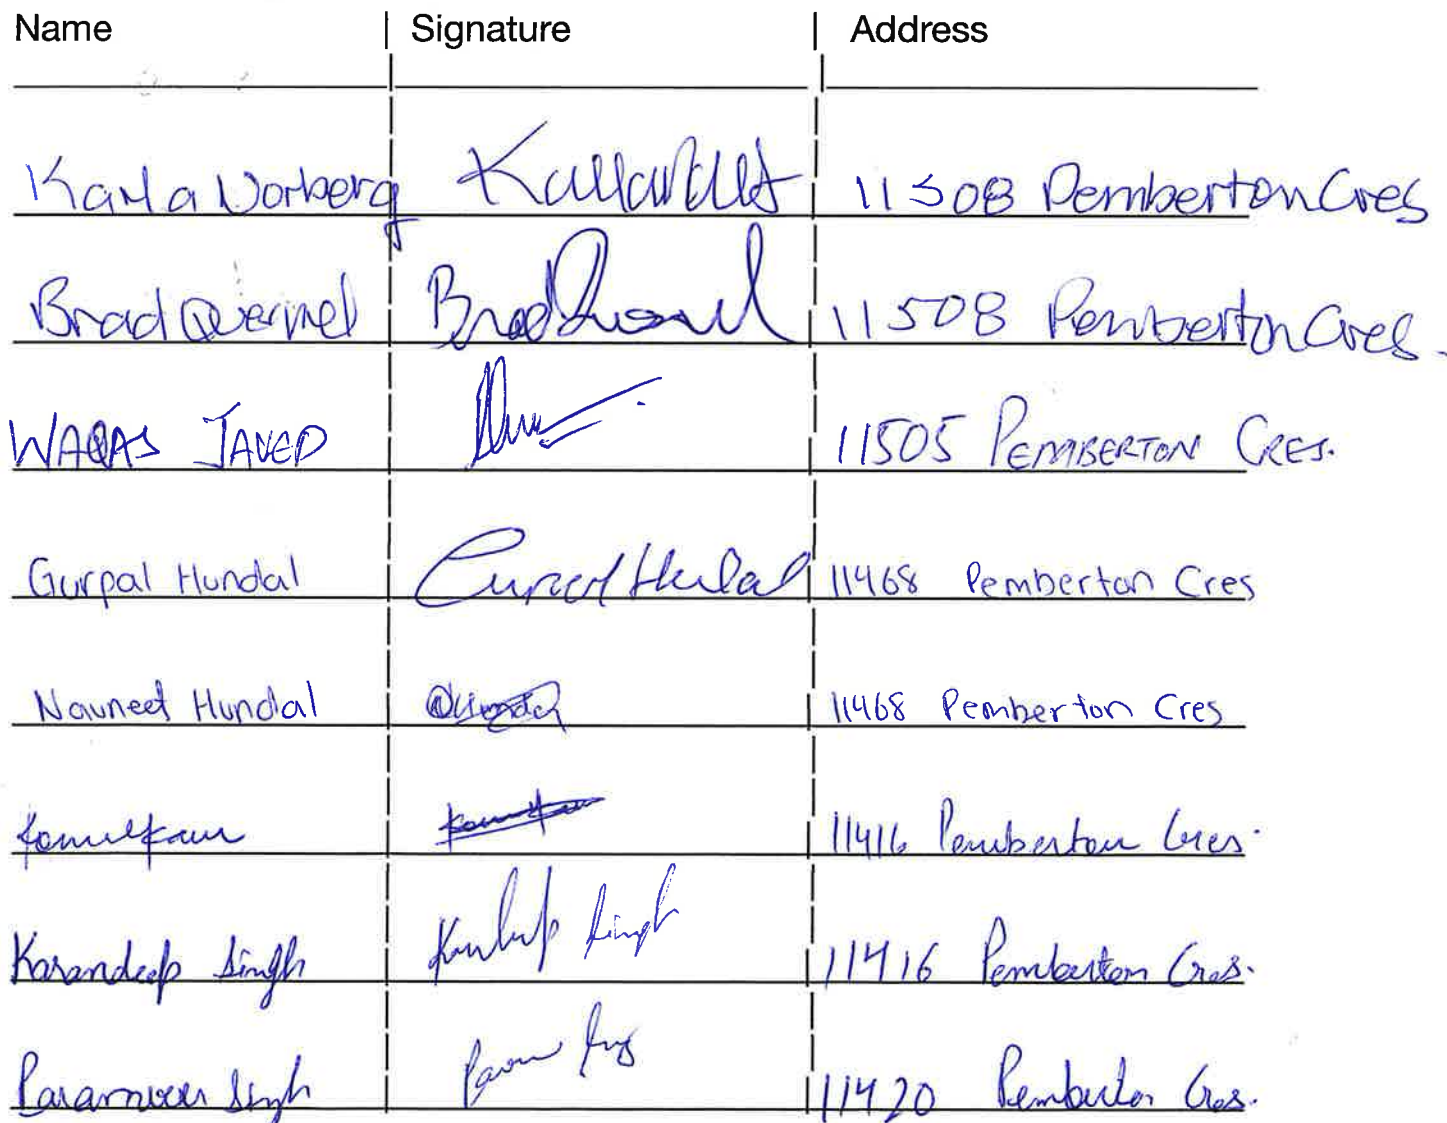 Name | Signature | Address
Karla Norberg 11508 Pemberton Cres
Brad Quernel Brad 11508 Pemberton Cres.
WAQAS JAVED 11505 PEMBERTON CRES.
Gurpal Hundal 11468 Pemberton Cres
Navneet Hundal 11468 Pemberton Cres
11416 Pemberton Cres.
Karandeep Singh Singh 11416 Pemberton Cres.
Singh 11420 Pemberton Cres.